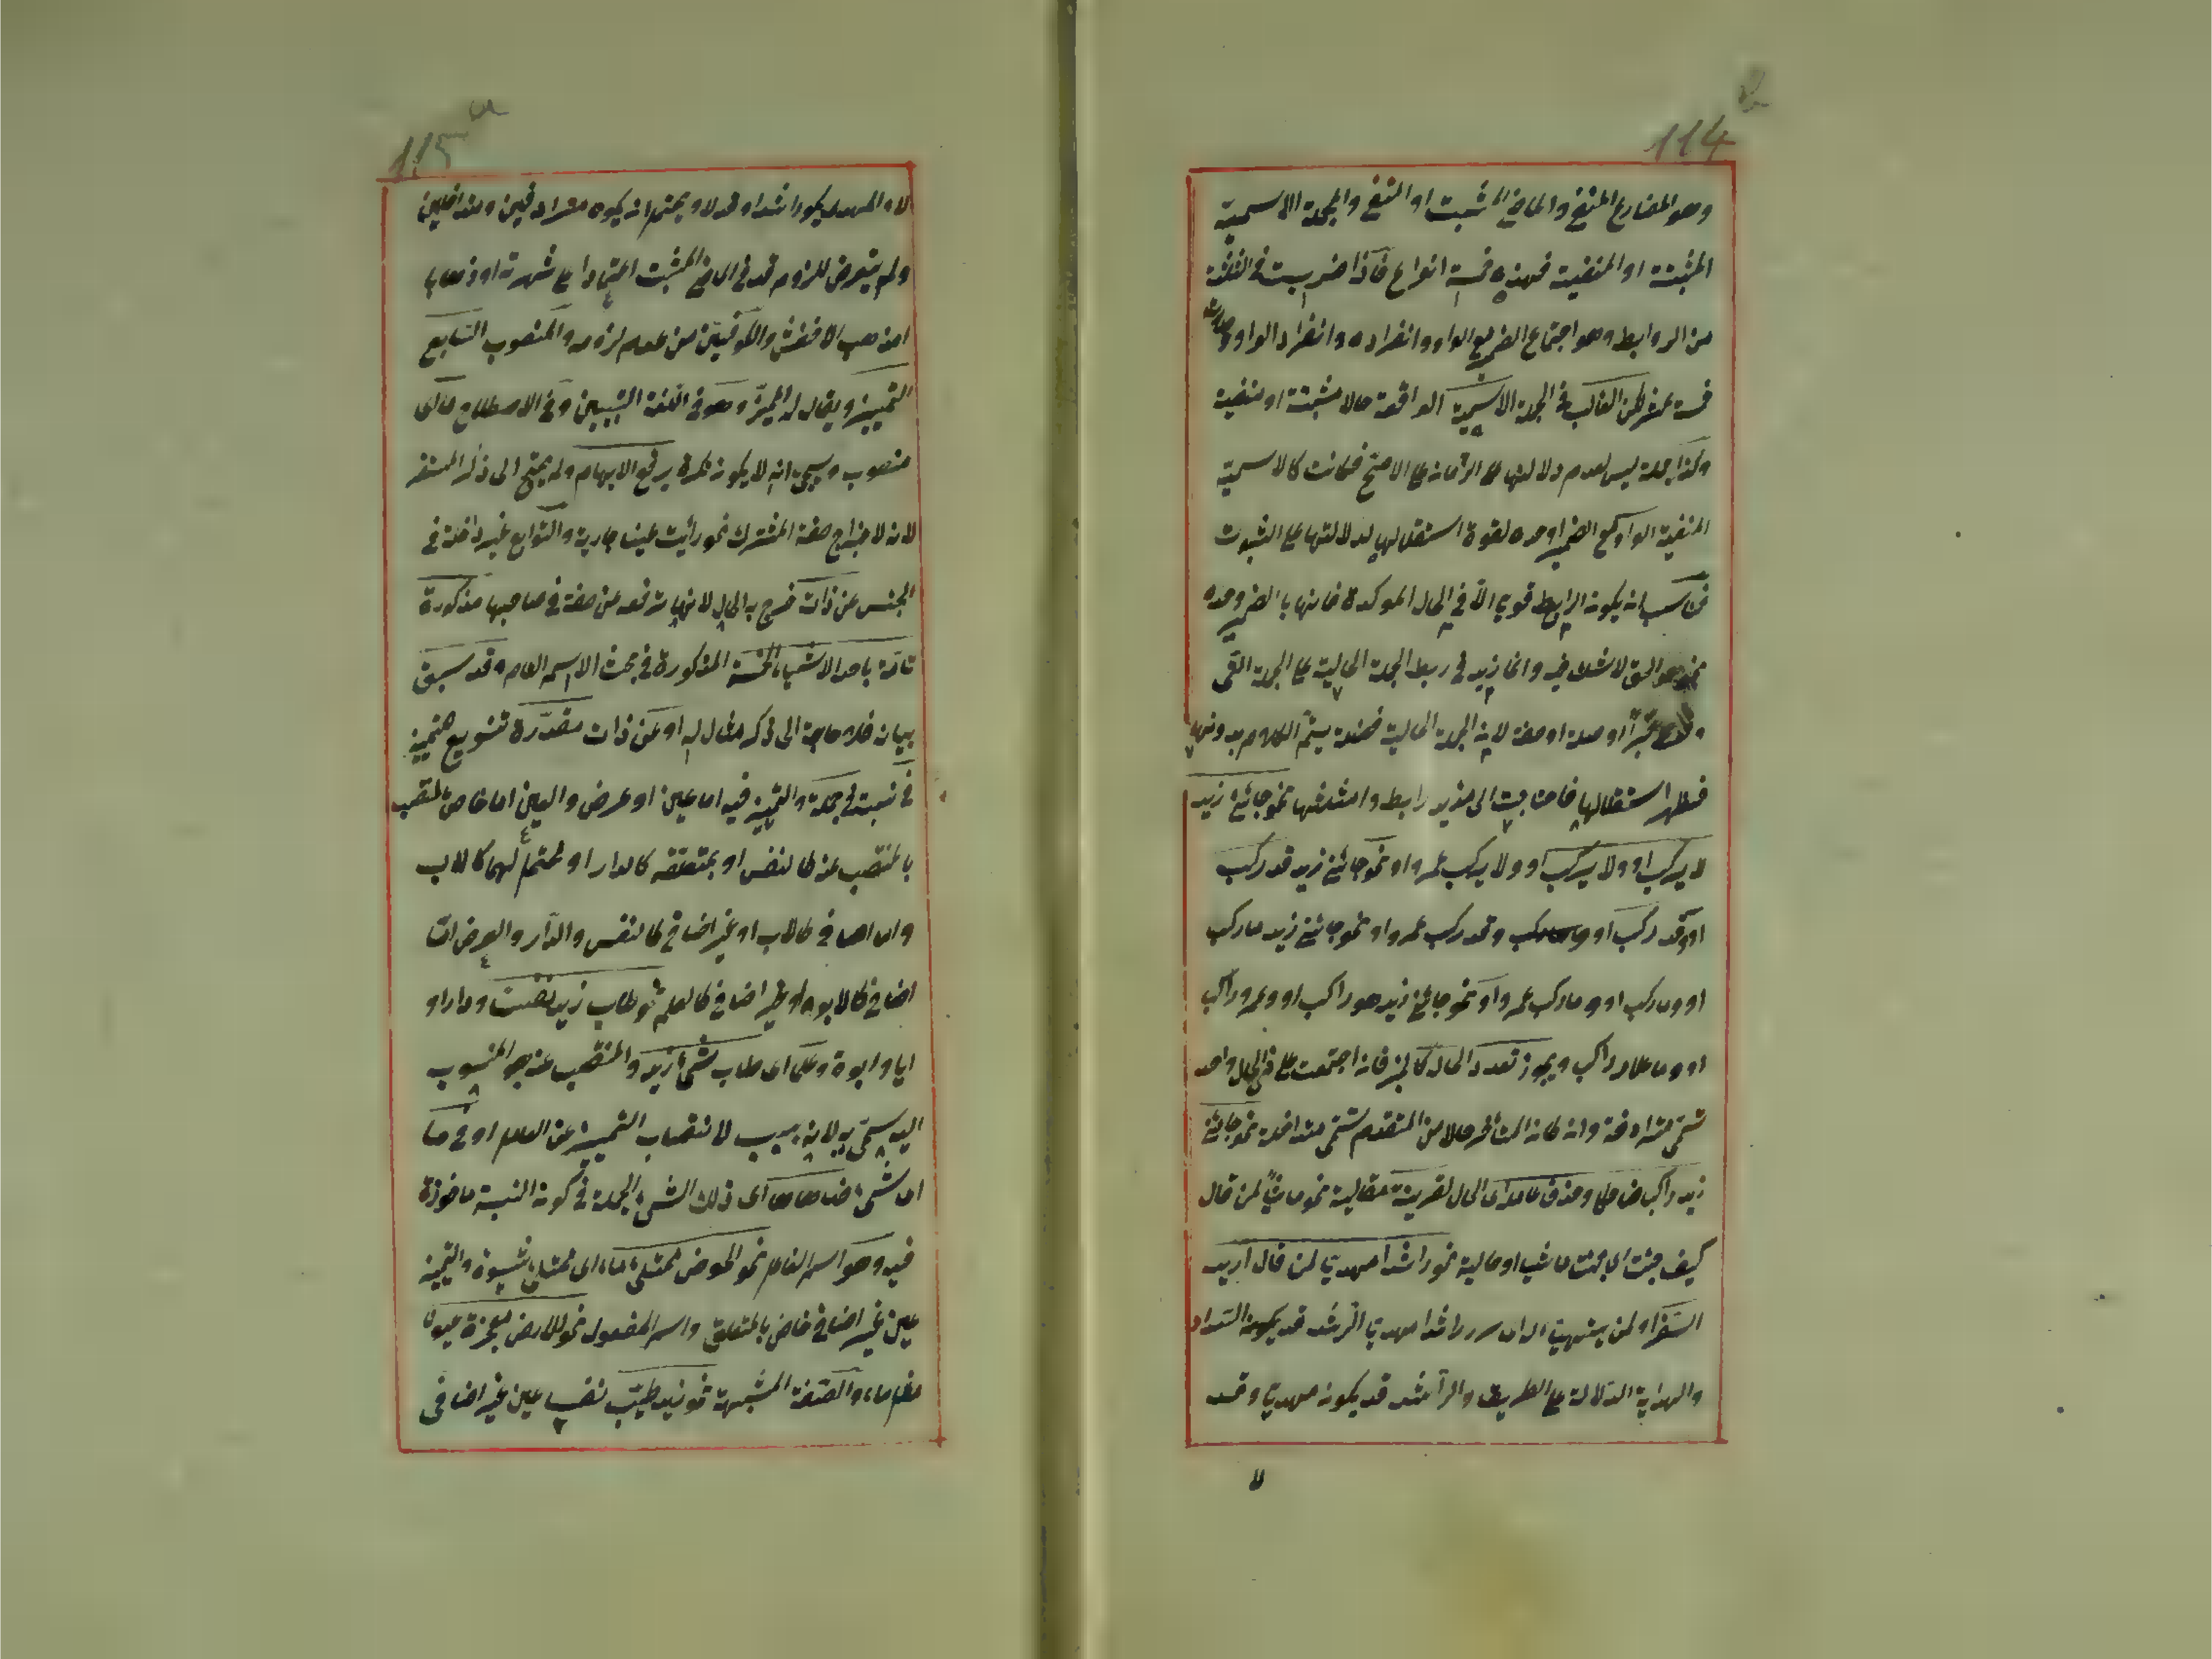 114
وهو المضارع المنفي والماضي المثبت او المنفي والجملة الاسمية
المثبتة او المنفية فهذه خمسة انواع فاذا ضربت في الثلثة
من الروابط وهو اجتماع الضمير مع الواو وانفراده وانفراد الواو صارت
خمسة عشر لكن الغالب في الجملة الاسمية الواقعة حالا مثبتة او منفية
وكذا جملة ليس لعدم دلالتها على الزمان على الاصح فكانت كالاسمية
المنفية الواو مع الضمير او وحده لقوة استقلالها لدلالتها على الثبوت
فناسب ان يكون الرابط قويا الا في الحال الموكدة فانها بالضمير وحده
نحو هو الحق لا شك فيه وانما زيد في ربط الجملة الحالية على الجملة التي
خبرا او صلة او صفة لان الجملة الحالية فضلة يتم الكلام بدونها
فظهر استقلالها فاحتاجت الى مزيد رابط وامثلتها نحو جائني زيد
لا يركب او ولا يركب او ولا يركب عمرو او نحو جائني زيد قد ركب
او وقد ركب او وقد ركب عمرو او نحو جائني زيد ما ركب
او وما ركب او وما ركب عمرو او نحو جائني زيد هو راكب او وعمرو راكب
او وما غلامه راكب ويجوز تعدد الحال كالخبر فان اجتمعت على ذي الحال واحد
تسمى مترادفة وان كان المتأخر حالا من المتقدم تسمى متداخلة نحو جائني
زيد راكبا ضاحكا وحذف عاملها اى الحال لقرينة مقالية نحو ماشيا لمن قال
كيف جئت اى جئت ماشيا او حالية نحو راشدا مهديا لمن قال اريد
السفر او لمن يتهيأ اى سر راشدا مهديا الرشد قد يكون السداد
والهداية الدلالة على الطريق والراشد قد يكون مهديا وقد
لا
115
لا والمهدى يكون راشدا وقد لا ويحتمل ان يكون مترادفين ومتداخلين
ولم يتعرض للزوم قد في الماضي المثبت اعتمادا على شهرته او ذهابا
الى مذهب الاخفش والكوفيين من عدم لزومه والمنصوب السابع
التمييز ويقال له المميز وهو في اللغة التبيين وفي الاصطلاح ما اى
منصوب وسيجئ انه لا يكون نكرة يرفع الابهام ولم يحتج الى ذكر المستقر
لانه لاخراج صفة المشترك نحو رأيت عينا جارية والتوابع غير داخلة في
الجنس عن ذات خرج به الحال لانها ترفعه عن صفة في صاحبها مذكورة
تامة باحد الاشياء الخمسة المذكورة في بحث الاسم العام وقد سبق
بيانه فلا حاجة الى ذكر مثال له او عن ذات مقدرة تنويع
في نسبة في جملة والتمييز فيه اما عين او عرض والعين اما خاص
بالمنتصب عنه كالنفس او بمتعلقه كالدار او محتمل لهما كالاب
واما اضافي كالاب او غير اضافي كالنفس والدار والعرض اما
اضافي كالابوة او غير اضافي كالعلم نحو طاب زيد نفسا ودارا و
ابا وابوة وعلما اى طاب شيء زيد والمنتصب عنه هو المنسوب
اليه سمى به لانه سبب لانتصاب التمييز عن الكلام او في ما
اى شيء ضاهاها اى ذلك الشيء الجملة في كون النسبة ماخوذة
فيه وهو اسم الفاعل نحو الحوض ممتلئ ماء اى ممتلئ شيؤه والتمييز
عين غير اضافي خاص بالمتعلق واسم المفعول نحو الارض مفجرة عيونا
والصفة المشبهة نحو زيد طيب نفسا عين غير اضافي